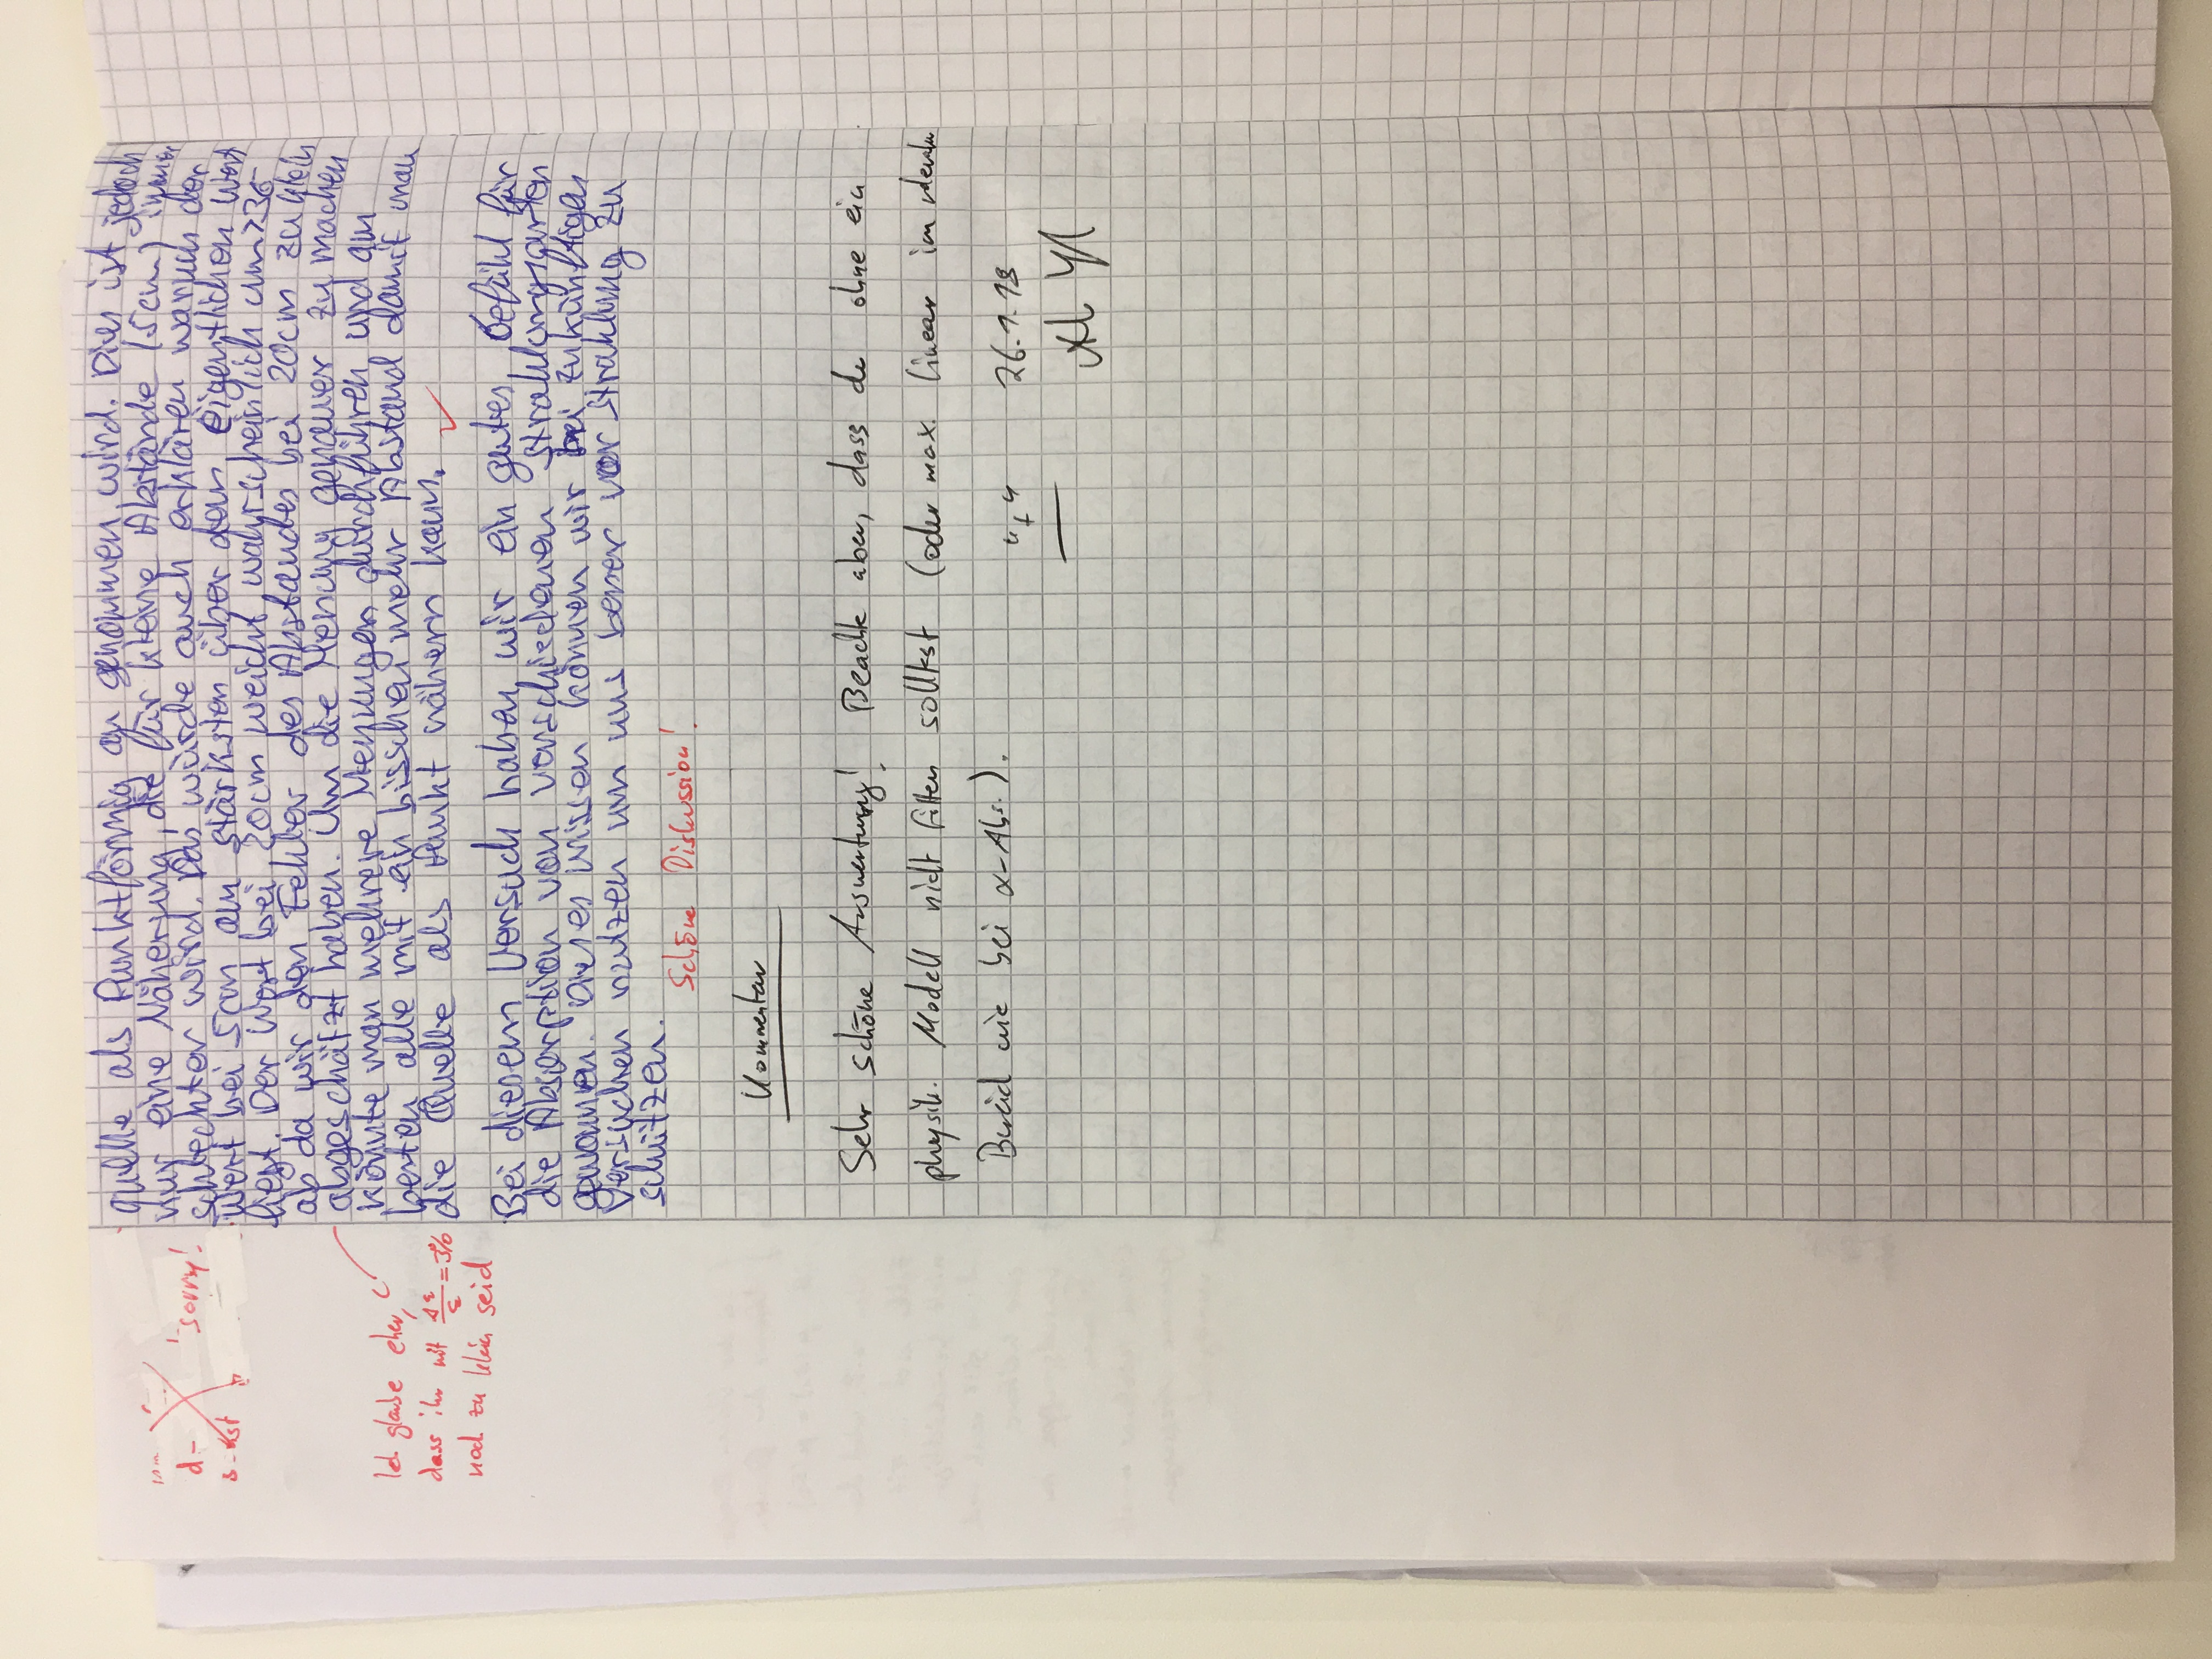 quelle als Punktförmig an genommen wird. Dies ist jedoch
nur eine Näherung, die für kleine Abstände (5cm) immer
schlechter wird. Das würde auch erklären warum der
Wert bei 5cm am stärksten über dem eigentlichen Wert
liegt. Der Wert bei 20cm weicht wahrscheinlich um >3σ
ab da wir den Fehler des Abstandes bei 20cm zu klein
abgeschätzt haben. Um die Messung genauer zu machen
könnte man mehrere Messungen durchführen und am
besten alle mit ein bisschen mehr Abstand damit man
die Quelle als Punkt nähern kann. ✓
"sorry!
Ich glaube eher,
dass ihr mit Δε/ε = 3%
noch zu klein seid
Bei diesem Versuch haben wir ein gutes Gefühl für
die Absorption von verschiedenen Strahlungsarten
gewonnen. Dieses Wissen können wir bei zukünftigen
Versuchen nutzen um uns besser vor Strahlung zu
schützen.
Schöne Diskussion!
Kommentar
Sehr schöne Auswertung! Beachte aber, dass du ohne ein
physik. Modell nicht fitten solltest (oder max. linear im relevanten
Bereich wie bei α-Abs.).
"+" 26.1.18